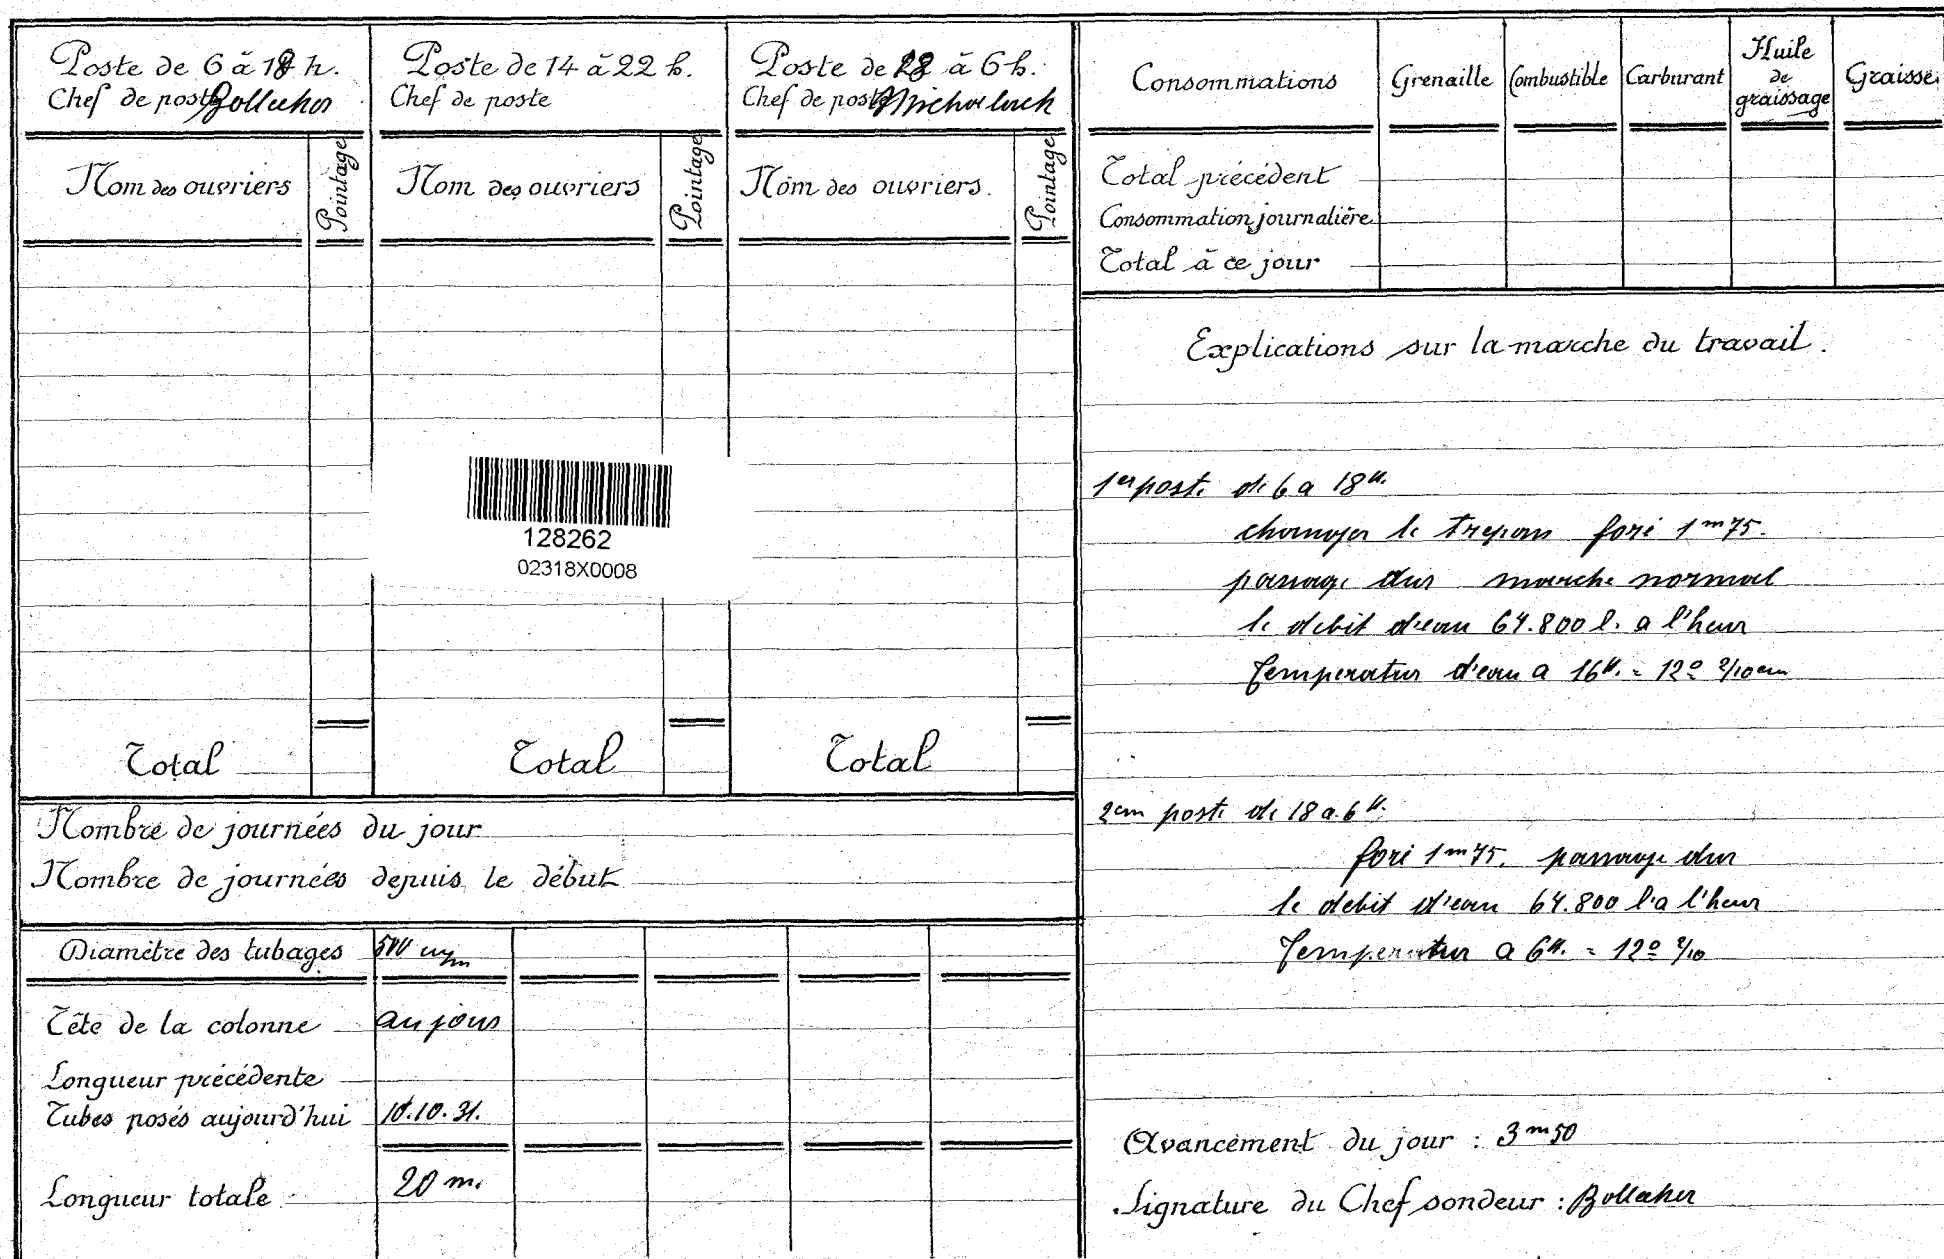 Poste de 6 à 18 h.
Chef de poste Bollecher
Nom des ouvriers
Pointage
Total
Poste de 14 à 22 h.
Chef de poste
Nom des ouvriers
Pointage
Total
Poste de 18 à 6 h.
Chef de poste
Nom des ouvriers.
Pointage
Total
128262
02318X0008
Nombre de journées du jour
Nombre de journées depuis le début
Diamètre des tubages 500 m/m
Tête de la colonne au jour
Longueur précédente
Tubes posés aujourd'hui 10.10.31.
Longueur totale 20 m.
Consommations Grenaille Combustible Carburant Huile de graissage Graisse
Total précédent
Consommation journalière
Total à ce jour
Explications sur la marche du travail.
1er poste de 6 a 18H.
changer le trepan foré 1m75.
passage dur marche normal
le debit d'eau 64.800 l. a l'heur
Temperatur d'eau a 16H. = 12° 2/10 em
2em poste de 18 a 6H.
foré 1m75. passage dur
le debit d'eau 64.800 l a l'heur
Temperatur a 6H. = 12° 2/10
Avancement du jour : 3m50
Signature du Chef sondeur : Bollecher